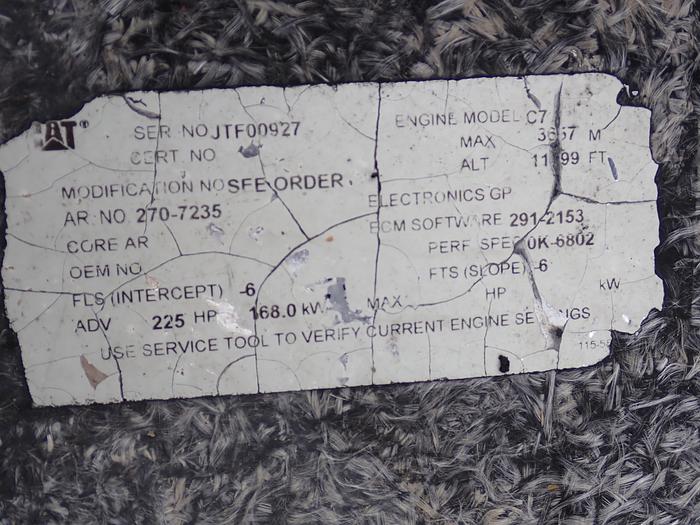 AT®
SER NO JTF00927
CERT. NO
MODIFICATION NO SFE ORDER.
AR. NO. 270-7235
CORE AR
OEM NO
FLS (INTERCEPT) -6
ADV 225 HP 168.0 kW
ENGINE MODEL C7
MAX 3657 M
ALT 11 99 FT
ELECTRONICS GP
ECM SOFTWARE 291-2153
PERF SPEC 0K-6802
FTS (SLOPE) -6
MAX HP kW
USE SERVICE TOOL TO VERIFY CURRENT ENGINE SE NGS
115-5